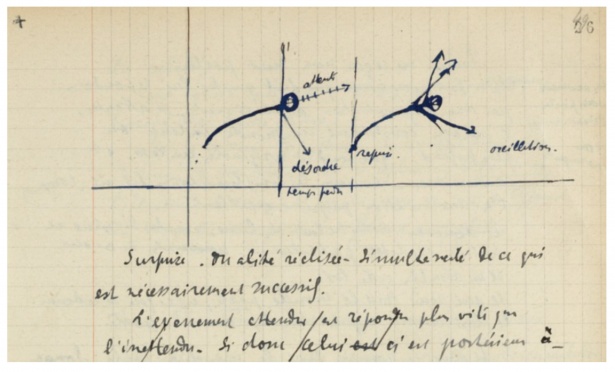 attente
désordre
temps perdu
reprise.
oscillation.
Surprise. Dualité réalisée - Simultanéité de ce qui
est nécessairement successif.
L'evenement attendu est répondu plus vite que
l'inattendu. Si donc celui ci est postérieur à